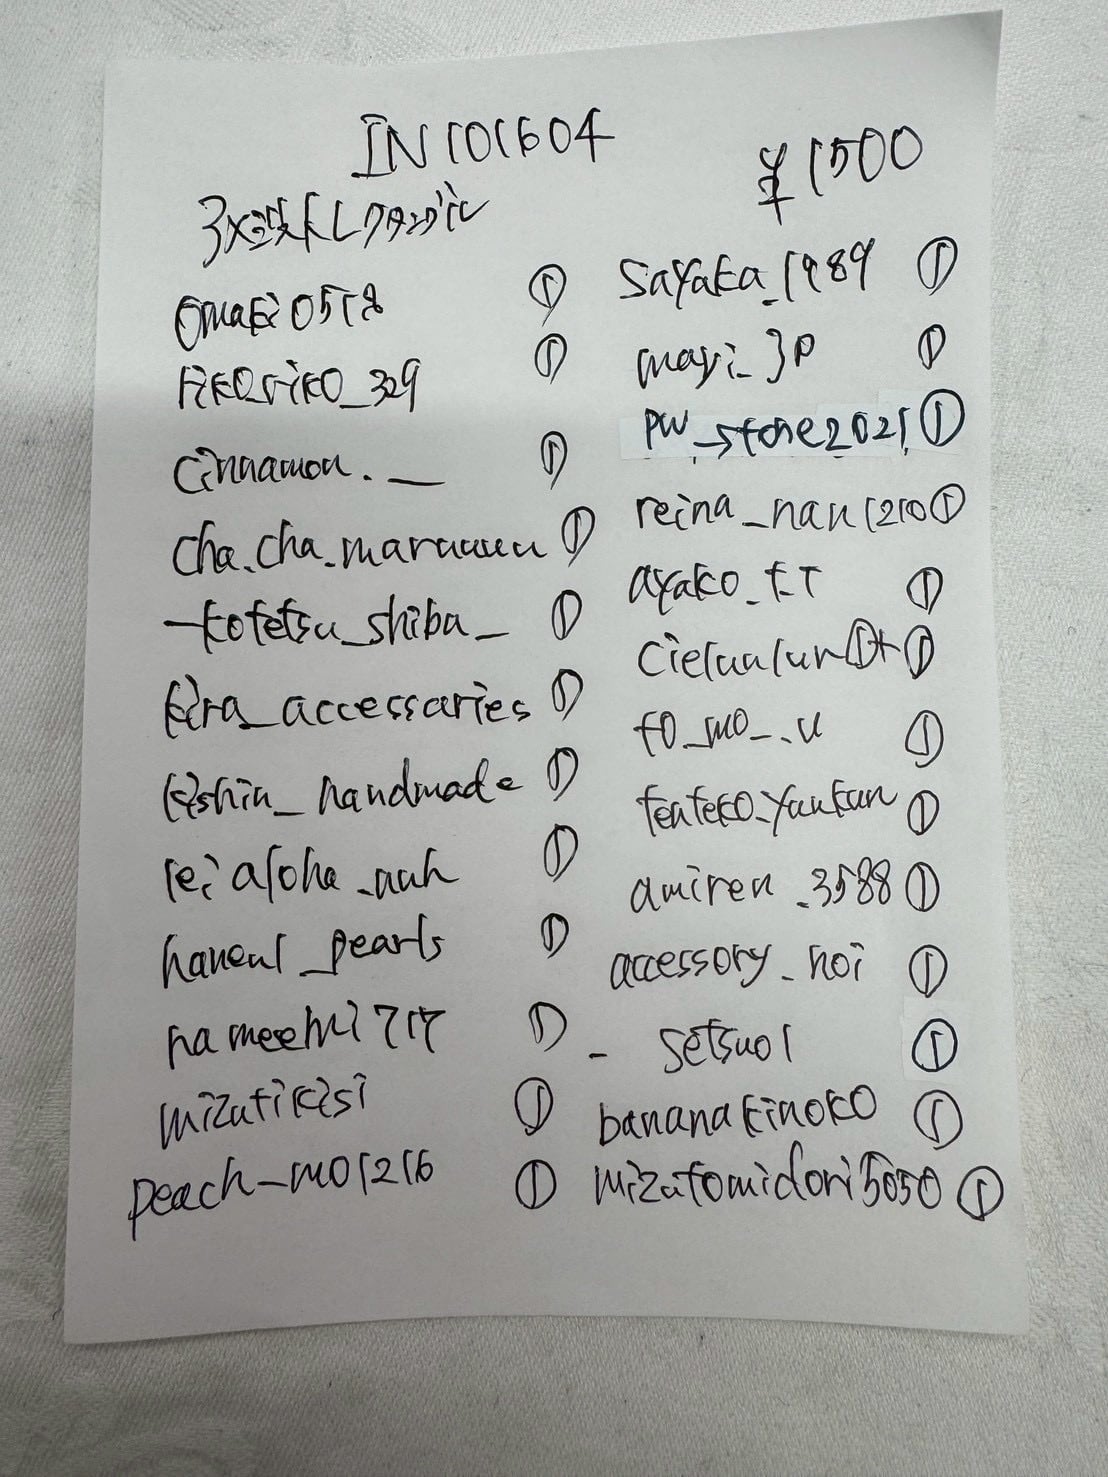 IN101604
¥1500
omaki0518 ①
riko.riko_329 ①
cinnamon.__ ①
cha.cha.maruuuu ①
_kotetsu_shiba_ ①
kira_accessaries ①
kishin_handmade ①
leialoha_nuh ①
haneul_pearls ①
nameehi717 ①
mizutikisi ①
peach_mo1216 ①
sayaka_1989 ①
mayi_jp ①
pw_store2021 ①
reina_nan1210 ①
ayako_t.T ①
①+①
to_mo_.u ①
tenteko_yankan ①
amiren_3588 ①
accessory_noi ①
_setsuo1 ①
bananakinoko ①
mizutomidori5050 ①